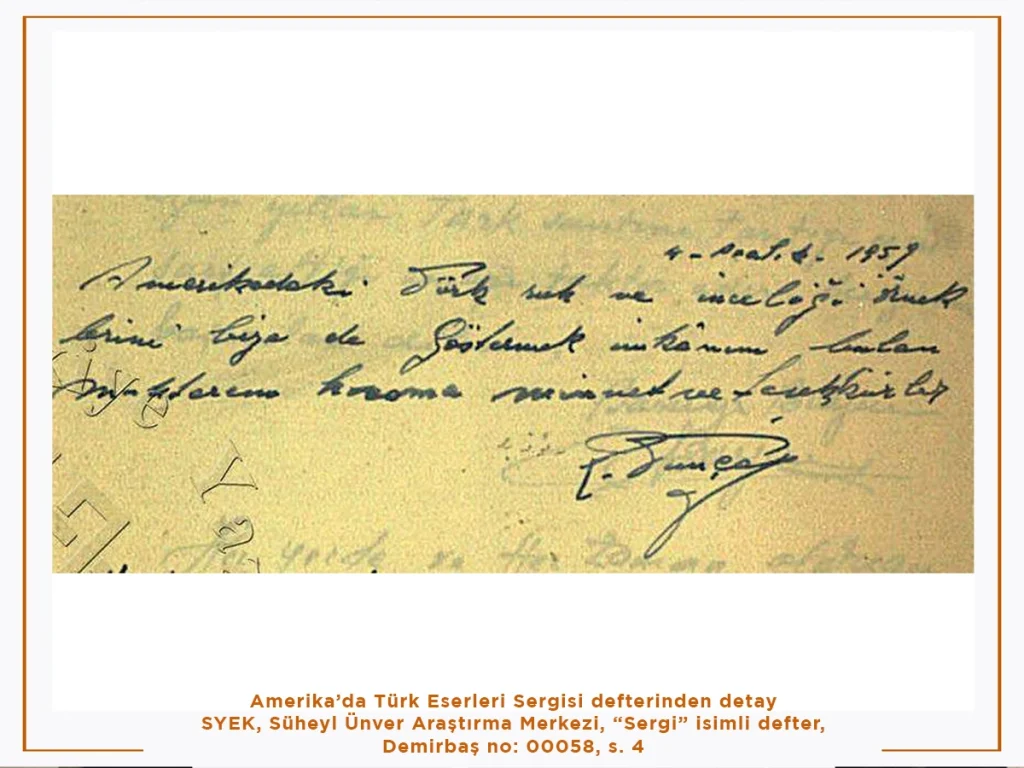 4 - Aralık - 1959
Amerikadaki Türk ruh ve inceliği örnek
lerini bize de Göstermek imkânını bulan
muhterem hocama minnet ve teşekkürler
Amerika’da Türk Eserleri Sergisi defterinden detay
SYEK, Süheyl Ünver Araştırma Merkezi, “Sergi” isimli defter,
Demirbaş no: 00058, s. 4